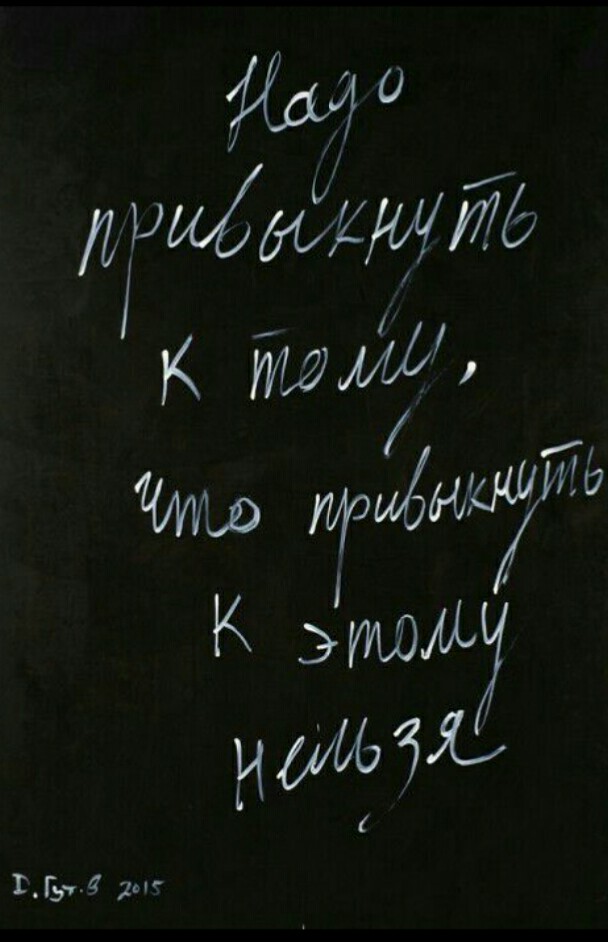 Надо
привыкнуть
к тому,
что привыкнуть
к этому
нельзя
D. Гут.в 2015